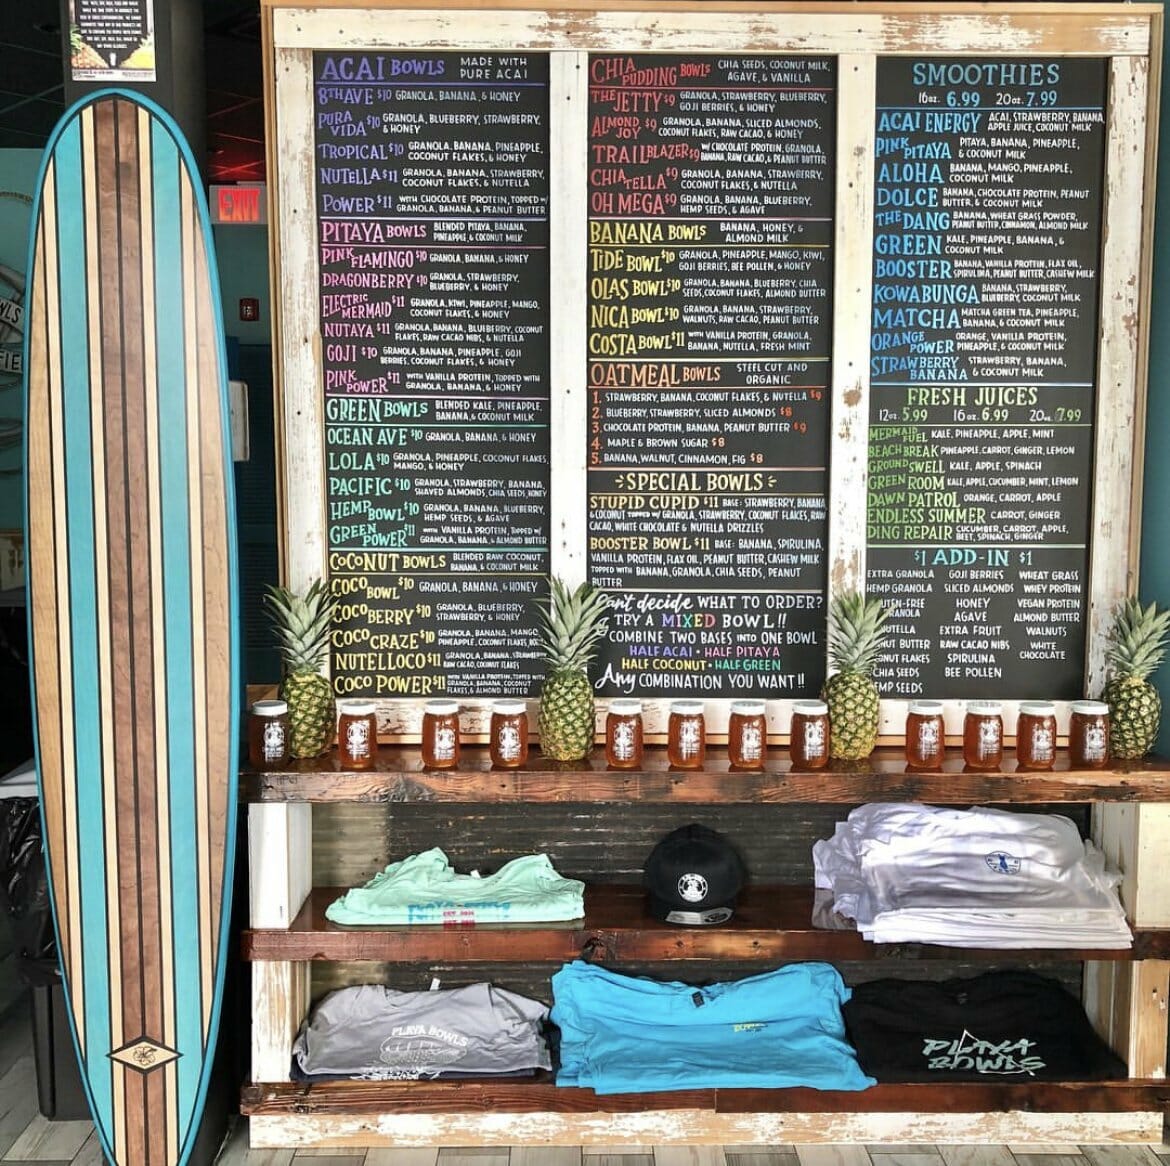 EXIT
ACAI BOWLS MADE WITH
PURE ACAI
8TH AVE $10 GRANOLA, BANANA, & HONEY
PURA VIDA $10 GRANOLA, BLUEBERRY, STRAWBERRY,
& HONEY
TROPICAL $10 GRANOLA, BANANA, PINEAPPLE,
COCONUT FLAKES, & HONEY
NUTELLA $11 GRANOLA, BANANA, STRAWBERRY,
COCONUT FLAKES, & NUTELLA
POWER $11 WITH CHOCOLATE PROTEIN, TOPPED W/
GRANOLA, BANANA, & PEANUT BUTTER
PITAYA BOWLS BLENDED PITAYA, BANANA,
PINEAPPLE, & COCONUT MILK
PINK FLAMINGO $10 GRANOLA, BANANA, & HONEY
DRAGONBERRY $10 GRANOLA, STRAWBERRY,
BLUEBERRY, & HONEY
ELECTRIC MERMAID $11 GRANOLA, KIWI, PINEAPPLE, MANGO,
COCONUT FLAKES, & HONEY
NUTAYA $11 GRANOLA, BANANA, BLUEBERRY, COCONUT
FLAKES, RAW CACAO NIBS, & NUTELLA
GOJI $10 GRANOLA, BANANA, PINEAPPLE, GOJI
BERRIES, COCONUT FLAKES, & HONEY
PINK POWER $11 WITH VANILLA PROTEIN, TOPPED WITH
GRANOLA, BANANA, & HONEY
GREEN BOWLS BLENDED KALE, PINEAPPLE,
BANANA, & COCONUT MILK
OCEAN AVE $10 GRANOLA, BANANA, & HONEY
LOLA $10 GRANOLA, PINEAPPLE, COCONUT FLAKES,
MANGO, & HONEY
PACIFIC $10 GRANOLA, STRAWBERRY, BANANA,
SHAVED ALMONDS, CHIA SEEDS, HONEY
HEMP BOWL $10 GRANOLA, BANANA, BLUEBERRY,
HEMP SEEDS, & AGAVE
GREEN POWER $11 WITH VANILLA PROTEIN, TOPPED W/
GRANOLA, BANANA, & ALMOND BUTTER
COCONUT BOWLS BLENDED RAW COCONUT,
BANANA, & COCONUT MILK
COCO BOWL $10 GRANOLA, BANANA, & HONEY
COCO BERRY $10 GRANOLA, BLUEBERRY,
STRAWBERRY, & HONEY
COCO CRAZE $10 GRANOLA, BANANA, MANGO,
PINEAPPLE, COCONUT FLAKES,
NUTELLOCO $11 GRANOLA, BANANA, STRAWBERRY
RAW CACAO, COCONUT FLAKES
COCO POWER $11 WITH VANILLA PROTEIN, TOPPED WITH
GRANOLA, BANANA, COCONUT
FLAKES, & ALMOND BUTTER
CHIA PUDDING BOWLS CHIA SEEDS, COCONUT MILK,
AGAVE, & VANILLA
THE JETTY $9 GRANOLA, STRAWBERRY, BLUEBERRY,
GOJI BERRIES, & HONEY
ALMOND JOY $9 GRANOLA, BANANA, SLICED ALMONDS,
COCONUT FLAKES, RAW CACAO, & HONEY
TRAIL BLAZER $9 W/ CHOCOLATE PROTEIN, GRANOLA,
BANANA, RAW CACAO, & PEANUT BUTTER
CHIA TELLA $9 GRANOLA, BANANA, STRAWBERRY,
COCONUT FLAKES, & NUTELLA
OH MEGA $9 GRANOLA, BANANA, BLUEBERRY,
HEMP SEEDS, & AGAVE
BANANA BOWLS BANANA, HONEY, &
ALMOND MILK
TIDE BOWL $10 GRANOLA, PINEAPPLE, MANGO, KIWI,
GOJI BERRIES, BEE POLLEN, & HONEY
OLAS BOWL $10 GRANOLA, BANANA, BLUEBERRY, CHIA
SEEDS, COCONUT FLAKES, ALMOND BUTTER
NICA BOWL $10 GRANOLA, BANANA, STRAWBERRY,
WALNUTS, RAW CACAO, PEANUT BUTTER
COSTA BOWL $11 WITH VANILLA PROTEIN, GRANOLA,
BANANA, NUTELLA, FRESH MINT
OATMEAL BOWLS STEEL CUT AND
ORGANIC
1. STRAWBERRY, BANANA, COCONUT FLAKES, & NUTELLA $9
2. BLUEBERRY, STRAWBERRY, SLICED ALMONDS $8
3. CHOCOLATE PROTEIN, BANANA, PEANUT BUTTER $9
4. MAPLE & BROWN SUGAR $8
5. BANANA, WALNUT, CINNAMON, FIG $8
SPECIAL BOWLS
STUPID CUPID $11 BASE: STRAWBERRY, BANANA
& COCONUT TOPPED W/ GRANOLA, STRAWBERRY, COCONUT FLAKES, RAW
CACAO, WHITE CHOCOLATE & NUTELLA DRIZZLES
BOOSTER BOWL $11 BASE: BANANA, SPIRULINA,
VANILLA PROTEIN, FLAX OIL, PEANUT BUTTER, CASHEW MILK
TOPPED WITH BANANA, GRANOLA, CHIA SEEDS, PEANUT
BUTTER
Can't decide WHAT TO ORDER?
TRY A MIXED BOWL!!
COMBINE TWO BASES INTO ONE BOWL
HALF ACAI • HALF PITAYA
HALF COCONUT • HALF GREEN
Any COMBINATION YOU WANT!!
SMOOTHIES
16oz. 6.99 20oz. 7.99
ACAI ENERGY ACAI, STRAWBERRY, BANANA,
APPLE JUICE, COCONUT MILK
PINK PITAYA PITAYA, BANANA, PINEAPPLE,
& COCONUT MILK
ALOHA BANANA, MANGO, PINEAPPLE,
& COCONUT MILK
DOLCE BANANA, CHOCOLATE PROTEIN, PEANUT
BUTTER, & COCONUT MILK
THE DANG BANANA, WHEAT GRASS POWDER,
PEANUT BUTTER, CINNAMON, ALMOND MILK
GREEN KALE, PINEAPPLE, BANANA, &
COCONUT MILK
BOOSTER BANANA, VANILLA PROTEIN, FLAX OIL,
SPIRULINA, PEANUT BUTTER, CASHEW MILK
KOWABUNGA BANANA, STRAWBERRY,
BLUEBERRY, COCONUT MILK
MATCHA MATCHA GREEN TEA, PINEAPPLE,
BANANA, & COCONUT MILK
ORANGE POWER ORANGE, VANILLA PROTEIN,
PINEAPPLE, & COCONUT MILK
STRAWBERRY BANANA STRAWBERRY, BANANA,
& COCONUT MILK
FRESH JUICES
12oz. 5.99 16oz. 6.99 20oz. 7.99
MERMAID FUEL KALE, PINEAPPLE, APPLE, MINT
BEACH BREAK PINEAPPLE, CARROT, GINGER, LEMON
GROUND SWELL KALE, APPLE, SPINACH
GREEN ROOM KALE, APPLE, CUCUMBER, MINT, LEMON
DAWN PATROL ORANGE, CARROT, APPLE
ENDLESS SUMMER CARROT, GINGER
DING REPAIR CUCUMBER, CARROT, APPLE,
BEET, SPINACH, GINGER
$1 ADD-IN $1
EXTRA GRANOLA GOJI BERRIES WHEAT GRASS
HEMP GRANOLA SLICED ALMONDS WHEY PROTEIN
HONEY VEGAN PROTEIN
AGAVE ALMOND BUTTER
EXTRA FRUIT WALNUTS
RAW CACAO NIBS WHITE
CHOCOLATE
SPIRULINA
CHIA SEEDS BEE POLLEN
PLAYA BOWLS
EST. 2014
PLAYA BOWLS
PLAYA
BOWLS